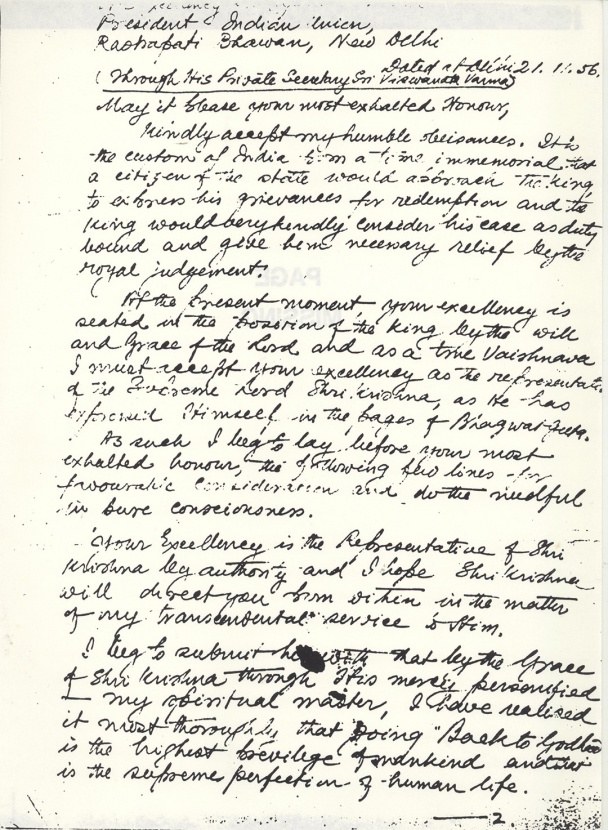 President Indian Union,
Rastrapati Bhawan, New Delhi
Dated at Delhi 21. 11. 56.
(Through His Private Secretary Sri Viswanath Varma)
May it please your most exhalted Honour,
Kindly accept my humble obeisances. It is
the custom of India from a time immemorial that
a citizen of the state would approach the king
to express his grievances for redemption and the
king would very kindly consider his case as duty
bound and give him necessary relief by the
royal judgement.
PAGE
MISSING
At the present moment, your excellency is
seated in the position of the king by the will
and Grace of the Lord and as a true Vaishnava
I must accept your excellency as the representative
of the Supreme Lord Shri Krishna, as He has
Himself in the pages of Bhagwat Geeta.
As such I beg to lay before your most
exhalted honour, the following few lines for
favourable consideration and do the needful
in pure consciousness.
Your Excellency is the Representative of Shri
Krishna by authority and I hope Shri Krishna
will direct you from within in the matter
of my transcendental service to Him.
I beg to submit that by the Grace
of Shri Krishna through His mercy personified
my spiritual master, I have realised
it most thoroughly that going "Back to Godhead
is the highest previlege of mankind and
is the supreme perfection of human life.
2.